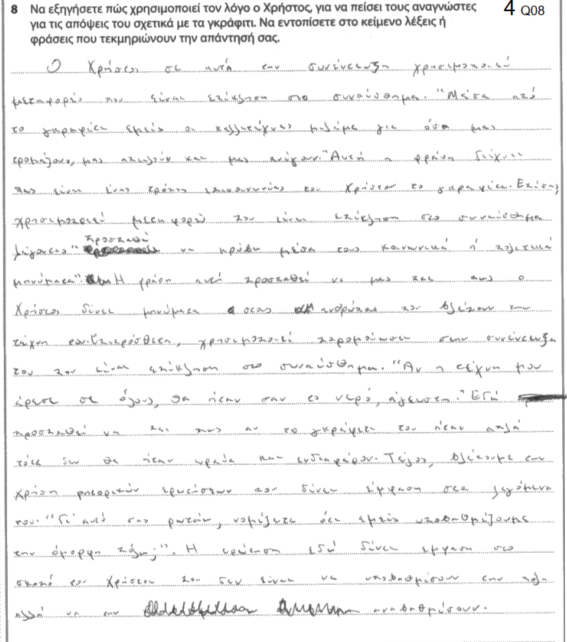 8 Να εξηγήσετε πώς χρησιμοποιεί τον λόγο ο Χρήστος, για να πείσει τους αναγνώστες
για τις απόψεις του σχετικά με τα γκράφιτι. Να εντοπίσετε στο κείμενο λέξεις ή
φράσεις που τεκμηριώνουν την απάντησή σας.
4 Q08
Ο Χρήστος σε αυτή την συνέντευξη χρησιμοποιεί
μεταφορές που είναι επίκληση στο συναίσθημα. "Μέσα από
το γκραφίτι εμείς οι καλλιτέχνες μιλάμε για όσα μας
τρομάζουν, μας απειλούν και μας πνίγουν." Αυτή η φράση δείχνει
πως είναι ένας τρόπος επικοινωνίας του Χρήστου το γκραφίτι. Επίσης
χρησιμοποιεί μεταφορά που είναι επίκληση στο συναίσθημα
λέγοντας "προσπαθώ να κρύβω μέσα τους κοινωνικά ή πολιτικά
μηνύματα". Η φράση αυτή προσπαθεί να μας πει πως ο
Χρήστος δίνει μηνύματα στους ανθρώπους που βλέπουν την
τέχνη του. Επιπρόσθετα, χρησιμοποιεί παρομοίωση στην συνέντευξη
του που είναι επίκληση στο συναίσθημα. "Αν η τέχνη μου
άρεσε σε όλους, θα ήταν σαν το νερό, άγευστη." Εδώ
προσπαθεί να πει πως αν το γκράφιτι του ήταν απλά
τότε δεν θα ήταν ωραία και ενδιαφέρον. Τέλος, βλέπουμε την
χρήση ρητορικών ερωτήσεων που δίνει έμφαση στα λεγόμενα
του. "Γι' αυτό σας ρωτάω, νομίζετε ότι εμείς υποβαθμίζουμε
την όμορφη πόλη;". Η ερώτηση εδώ δίνει έμφαση στο
σκοπό του Χρήστου που δεν είναι να υποβαθμίσουν την πόλη
αλλά να την αναβαθμίσουν.